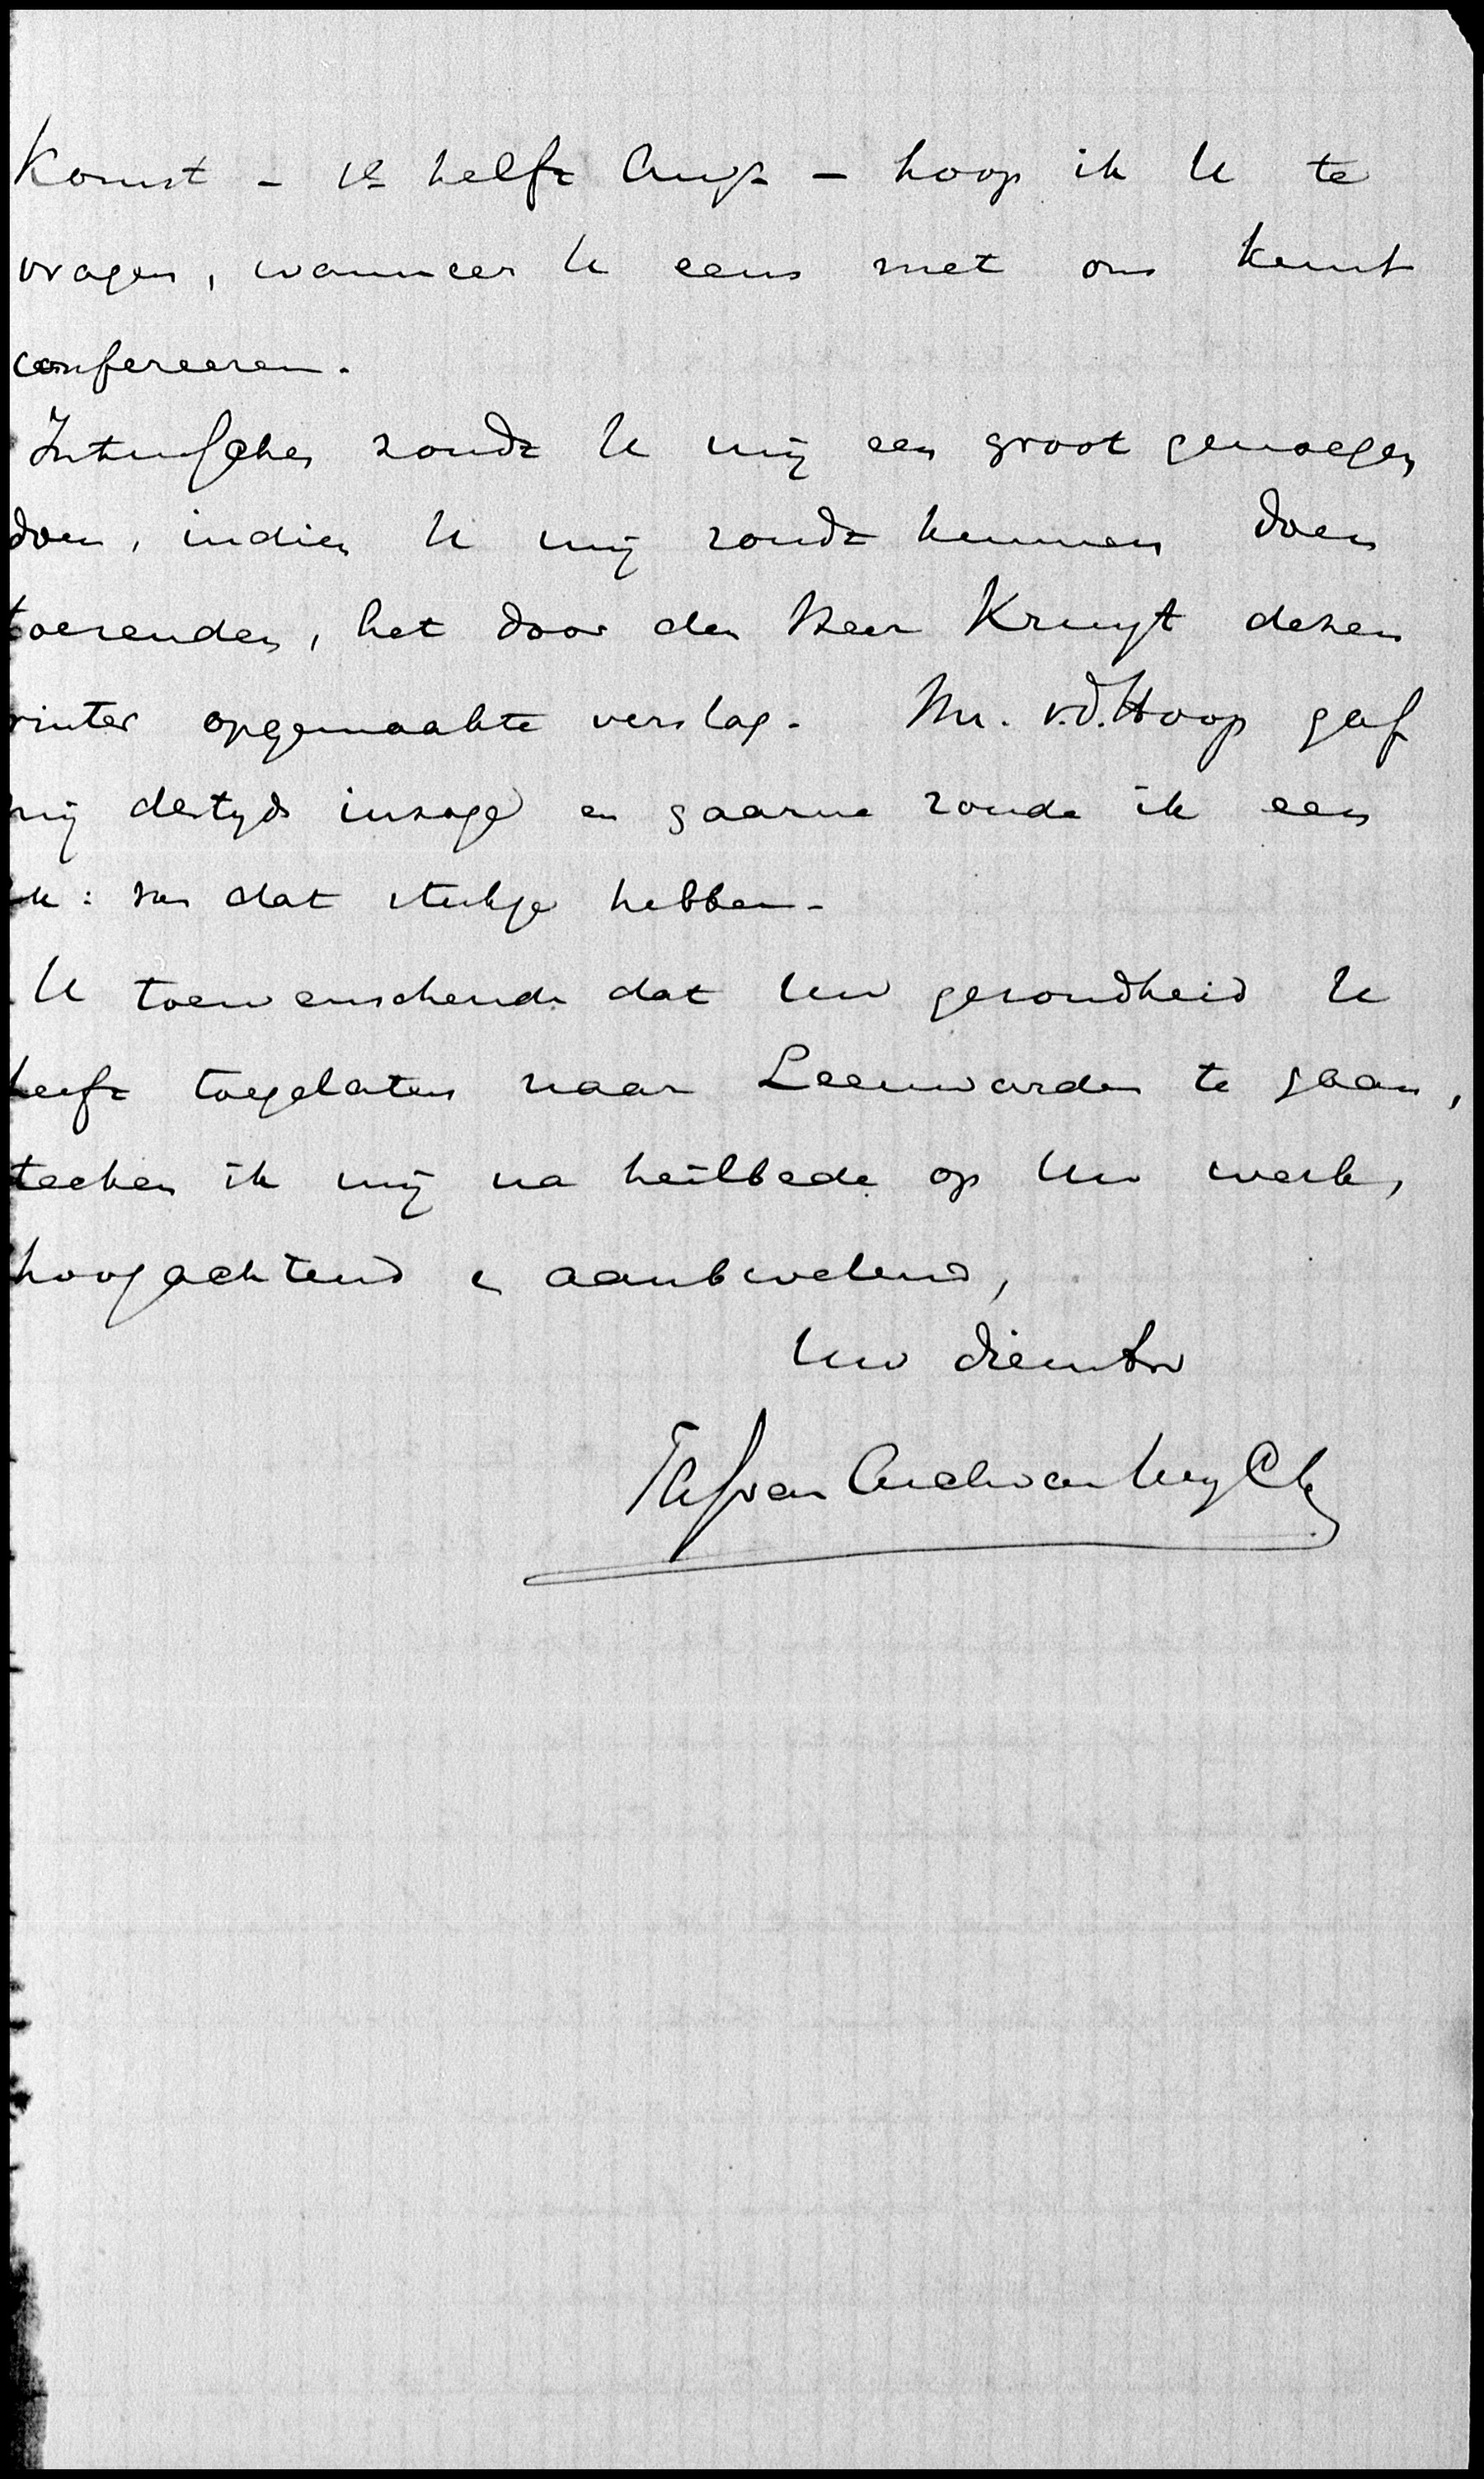 Komst - 1e helft Augt - hoop ik U te
vragen, wanneer U eens met ons kunt
confereeren.
Intusschen zoudt U mij een groot genoegen
doen, indien U mij zoudt kunnen doen
toezenden, het door den Heer Kruyt dezen
winter opgemaakte verslag. Mr. v.d. Hoop gaf
mij destyds inzage en gaarne zoude ik een
van dat stukje hebben.
U toewenschende dat Uw gezondheid U
heeft toegelaten naar Leeuwarden te gaan,
teeken ik mij na heilbede op Uw werk,
hoogachtend & aanbevelend,
Uw dienstw